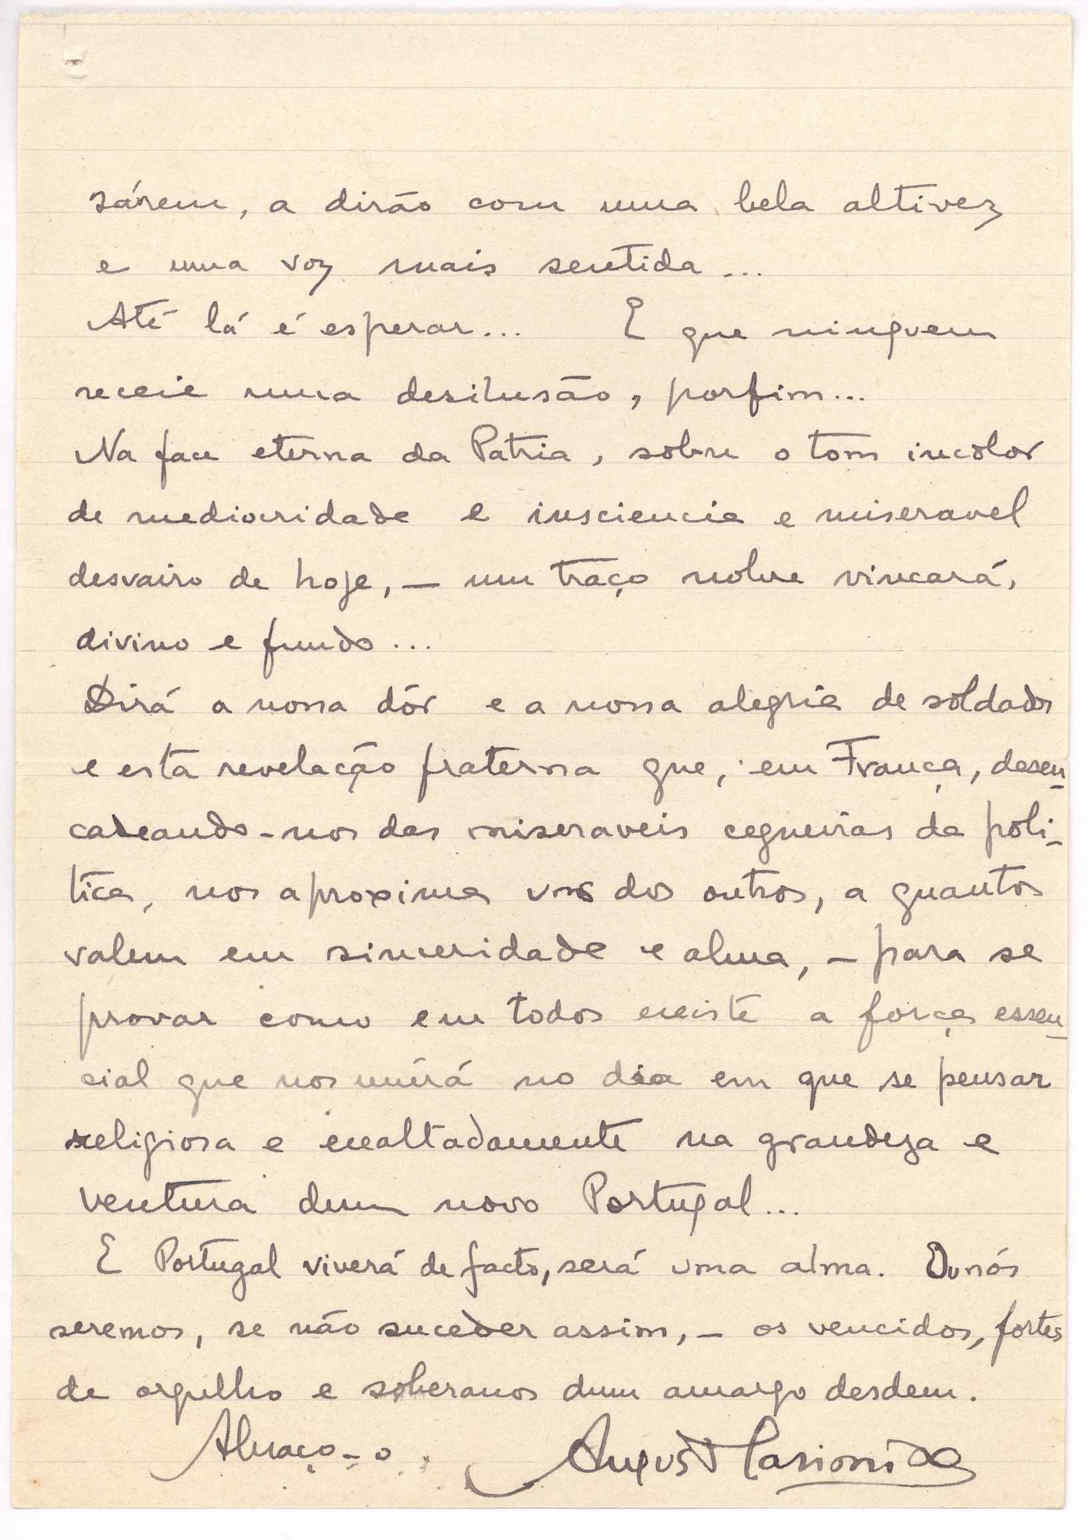 sárem, a dirão com uma bela altivez
e uma voz mais sentida...
Até lá é esperar... E que ninguem
receie uma desilusão, porfim...
Na face eterna da Patria, sobre o tom incolor
de mediocridade e insciencia e miseravel
desvairo de hoje, — um traço nobre vincará,
divino e fundo...
Dirá a nossa dôr e a nossa alegria de soldados
e esta revelação fraterna que, em França, desen-
cadeando-nos das miseraveis cegueiras da poli-
tica, nos aproxima uns dos outros, a quantos
valem em sinceridade e alma, — para se
provar como em todos existe a força essen-
cial que nos unirá no dia em que se pensar
religiosa e exaltadamente na grandeza e
ventura dum novo Portugal...
E Portugal viverá de facto, será uma alma. Ou nós
seremos, se não suceder assim, — os vencidos, fortes
de orgulho e soberanos dum amargo desdem.
Abraço-o.
Augusto Casimiro